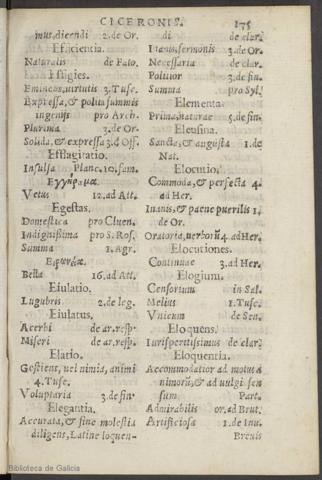 CICERONIS. 175
mus, dicendi 2. de Or.
Efficientia.
Naturalis de Fato.
Effigies.
Eminens, uirtutis 3. Tusc.
Expressa, & polita summis
ingenijs pro Arch.
Plurima 3. de Or.
Solida, & expressa 3. Off.
Efflagitatio.
Insulsa Planc. 10. fam.
Vetus 12. ad Att.
Egestas.
Domestica pro Cluen.
Indignissima pro S. Ros.
Summa 1. Agr.
Bella 16. ad Att.
Eiulatio.
Lugubris 2. de leg.
Eiulatus.
Acerbi de ar. resp.
Miseri de ar. resp.
Elatio.
Gestiens, uel nimia, animi
4. Tusc.
Voluptaria 3. de fin.
Elegantia.
Accurata, & sine molestia
diligens, Latine loquen-
di de clar.
Inanis, sermonis 3. de Or.
Necessaria de clar.
Politior 3. de fin.
Summa pro Syl.
Elementa.
Prima, naturae 5. de fin.
Eleusina.
Sancta, & augusta 1. de
Nat.
Elocutio.
Commoda, & perfecta 4.
ad Her.
Inanis, & paene puerilis 1.
de Or.
Oratoria, uerborũ 4. ad Her.
Elocutiones.
Continuae 3. ad Her.
Elogium.
Censorium in Sal.
Melius 1. Tusc.
Vnicum de Sen.
Eloquens.
Iurisperitissimus de clar.
Eloquentia.
Accommodatior ad motus a
nimorũ, & ad uulgi sen
sum Part.
Admirabilis or. ad Brut.
Artificiosa 1. de Inu.
Breuis
Biblioteca de Galicia